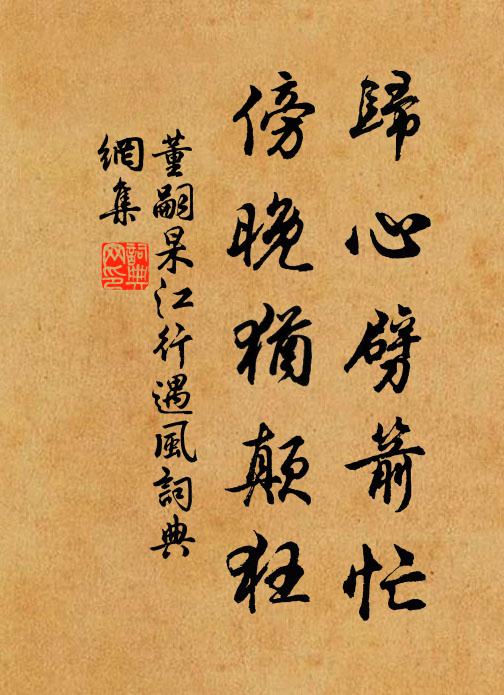 歸心劈箭忙
傍晚猶顛狂
董嗣杲江行遇風詞典
網集
詞典
网印